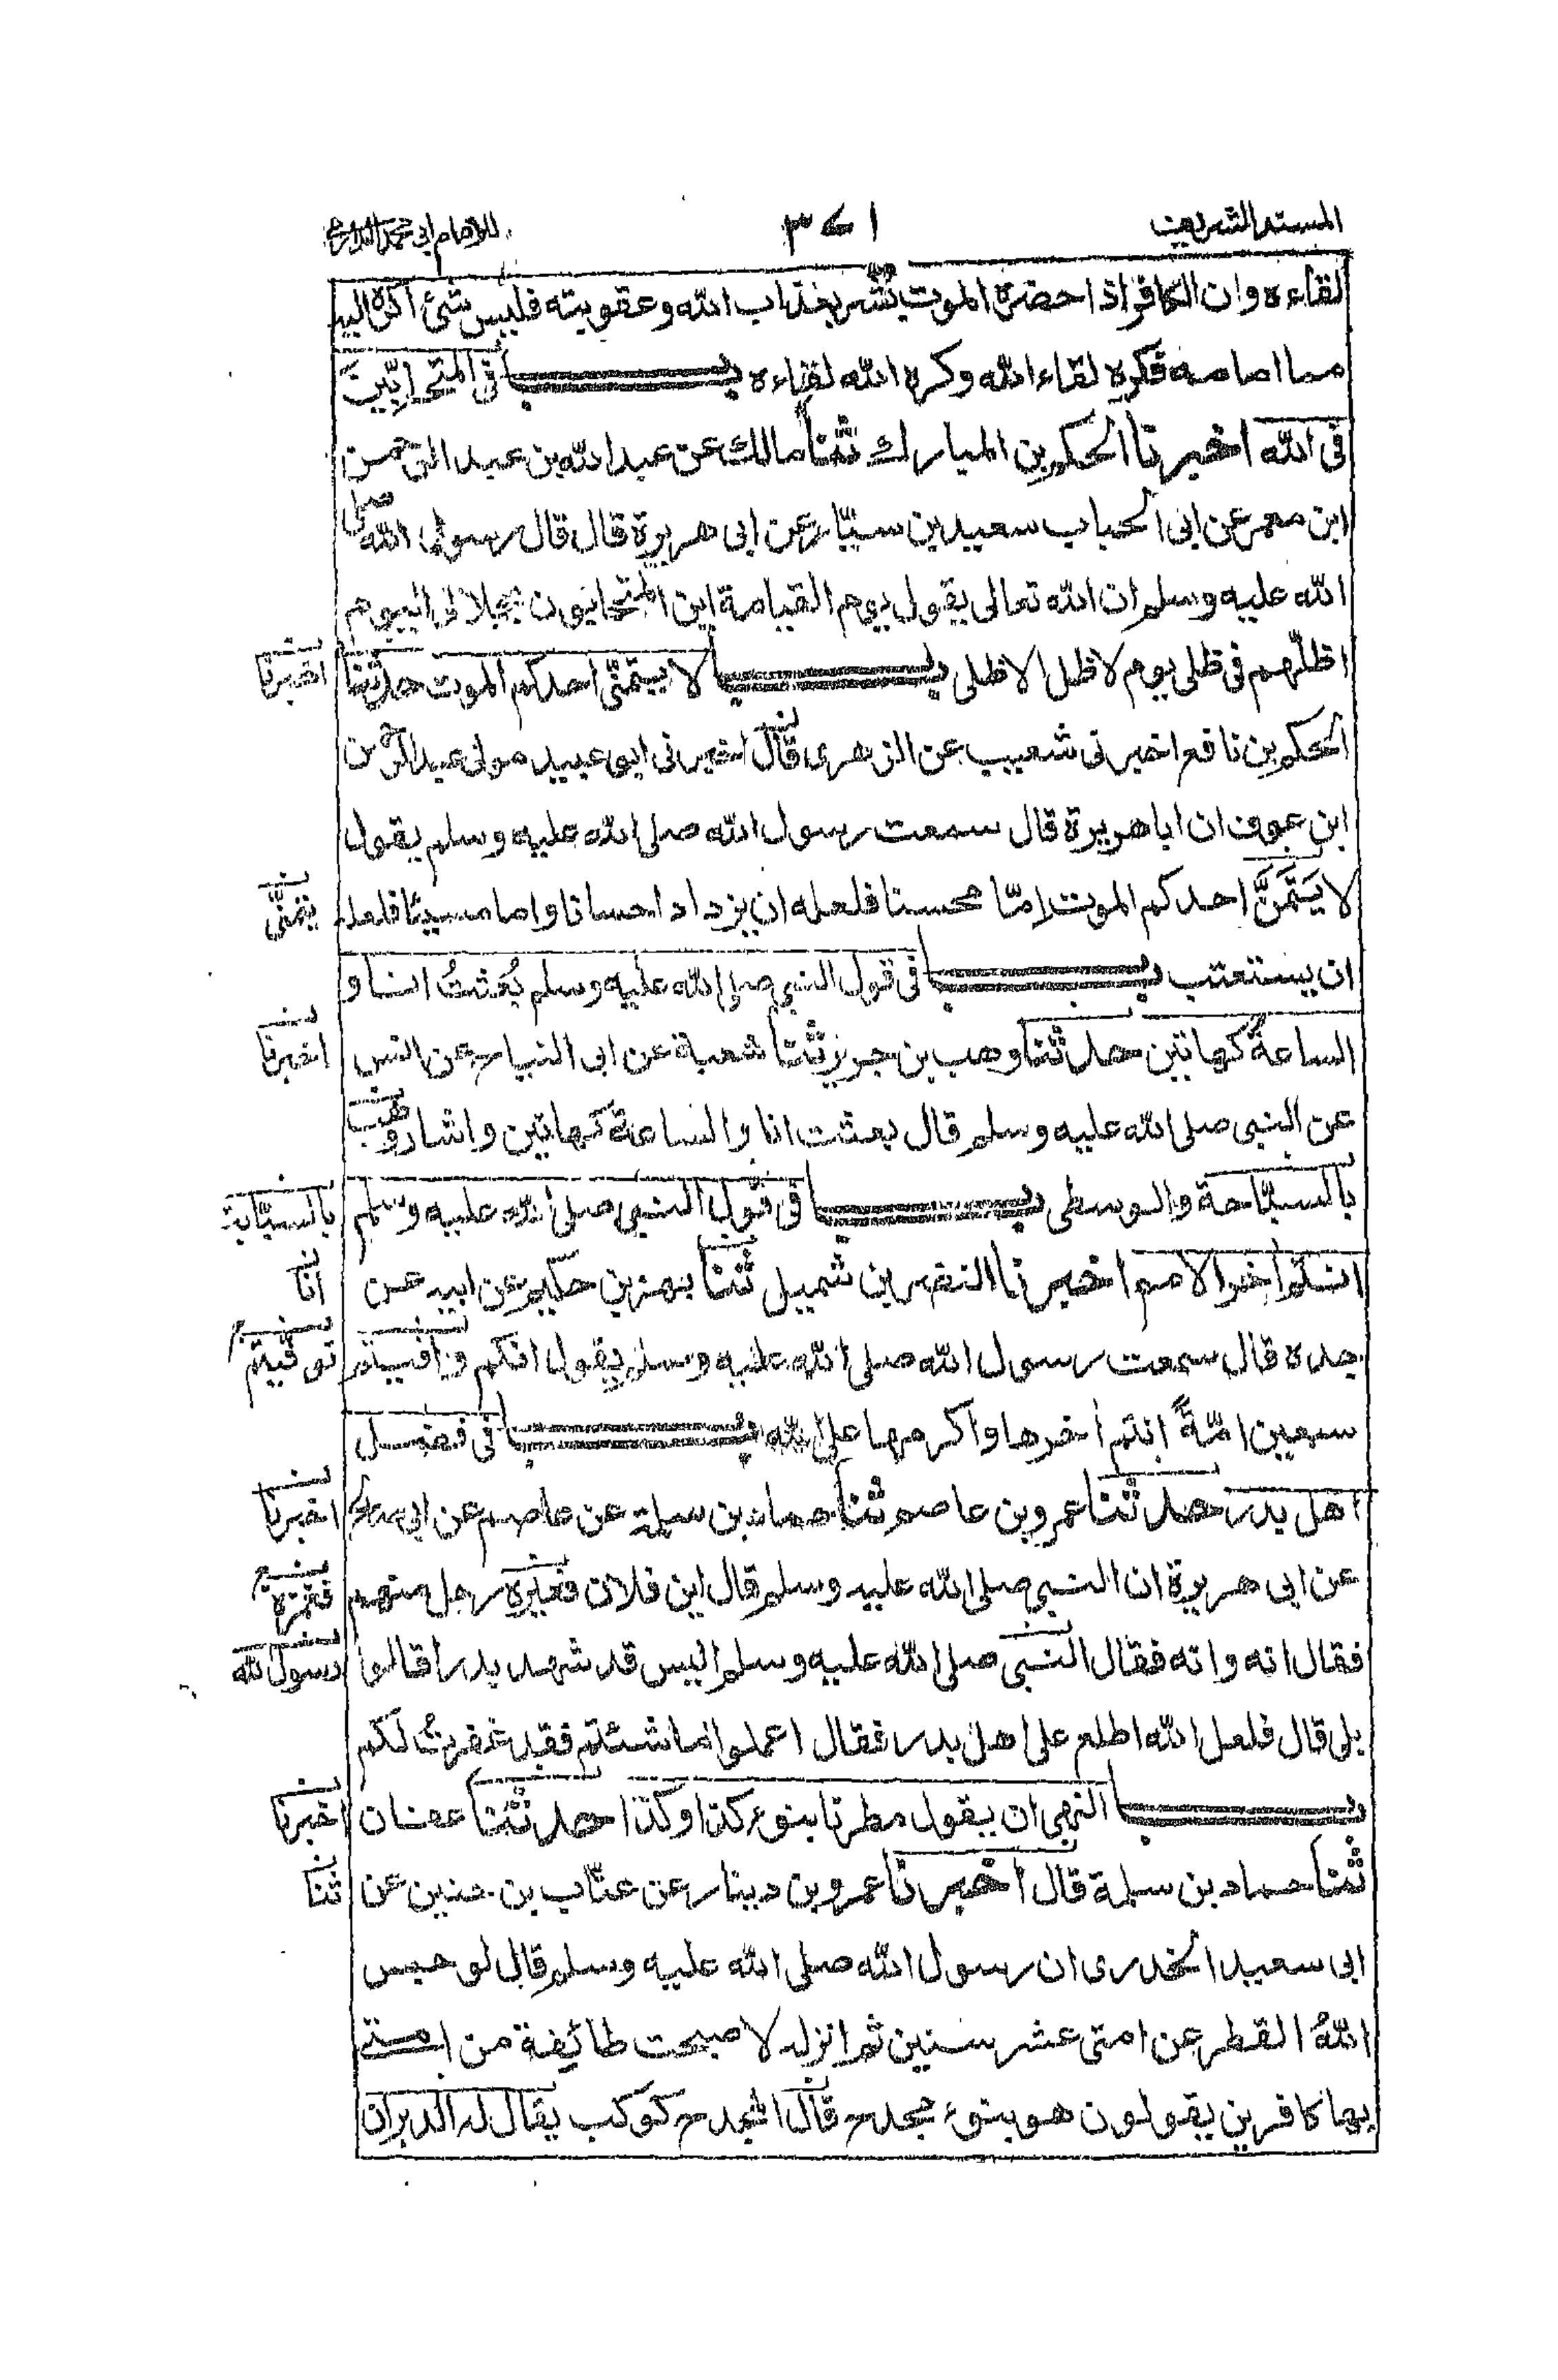 المسند الشريف
٣٧١
للامام ابي محمد الدارمي
لقاءه وان الكافر اذا حضره الموت بُشّر بعذاب الله وعقوبته فليس شئ اكره اليه
مما امامه فكره لقاء الله وكره الله لقاءه باب في المتحابّين
في الله اخبرنا الحكم بن المبارك ثنا مالك عن عبد الله بن عبد الرحمن
ابن معمر عن ابى الحباب سعيد بن يسار عن ابى هريرة قال قال رسول الله صلى
الله عليه وسلم ان الله تعالى يقول يوم القيامة اين المتحابون بجلالى اليوم
اظلّهم فى ظلى يوم لا ظل الا ظلى باب لا يتمنّى احدكم الموت حدثنا
اخبرنا
الحكم بن نافع اخبرنى شعيب عن الزهرى قال اخبرنى ابو عبيد مولى عبد الرحمن
ابن عوف ان ابا هريرة قال سمعت رسول الله صلى الله عليه وسلم يقول
لا يَتَمَنَّ احدكم الموت اِمّا محسنا فلعله ان يزداد احسانا واما مسيئا فلعله
يتمنَّى
ان يستعتب باب فى قول النبى صلى الله عليه وسلم بُعثتُ انا و
الساعةُ كهاتين حدثنا وهب بن جرير ثنا شعبة عن ابى التياح عن انس
اخبرنا
عن النبى صلى الله عليه وسلم قال بعثت انا والساعة كهاتين واشار وهب
بالسبّاحة والوسطى باب فى قول النبى صلى الله عليه وسلم
بالسبّابة
انتم اخر الامم اخبرنا النضر بن شميل ثنا بهز بن حكيم عن ابيه عن
انا
جده قال سمعت رسول الله صلى الله عليه وسلم يقول انكم وافيتم
توفّيتم
سبعين امّةً انتم اخرها واكرمها على الله باب فى فضل
اهل بدر حدثنا عمرو بن عاصم ثنا حماد بن سلمة عن عاصم عن ابى صالح
اخبرنا
عن ابى هريرة ان النبى صلى الله عليه وسلم قال اين فلان فغيّره رجل منهم
فغمزه
فقال انه وانه فقال النبى صلى الله عليه وسلم اليس قد شهد بدرا قالوا
رسول الله
بلى قال فلعل الله اطلع على اهل بدر فقال اعملوا ما شئتم فقد غفرتُ لكم
باب النهى ان يقول مطرنا بنوء كذا وكذا حدثنا عفان
اخبرنا
ثنا حماد بن سلمة قال اخبرنا عمرو بن دينار عن عتّاب بن حنين عن
ثنا
ابى سعيد الخدرى ان رسول الله صلى الله عليه وسلم قال لو حبس
اللهُ القطر عن امتى عشر سنين ثم انزله لاصبحت طائفة من امتى
بها كافرين يقولون هو بنوء مجدح قال المجدح كوكب يقال له الدبران